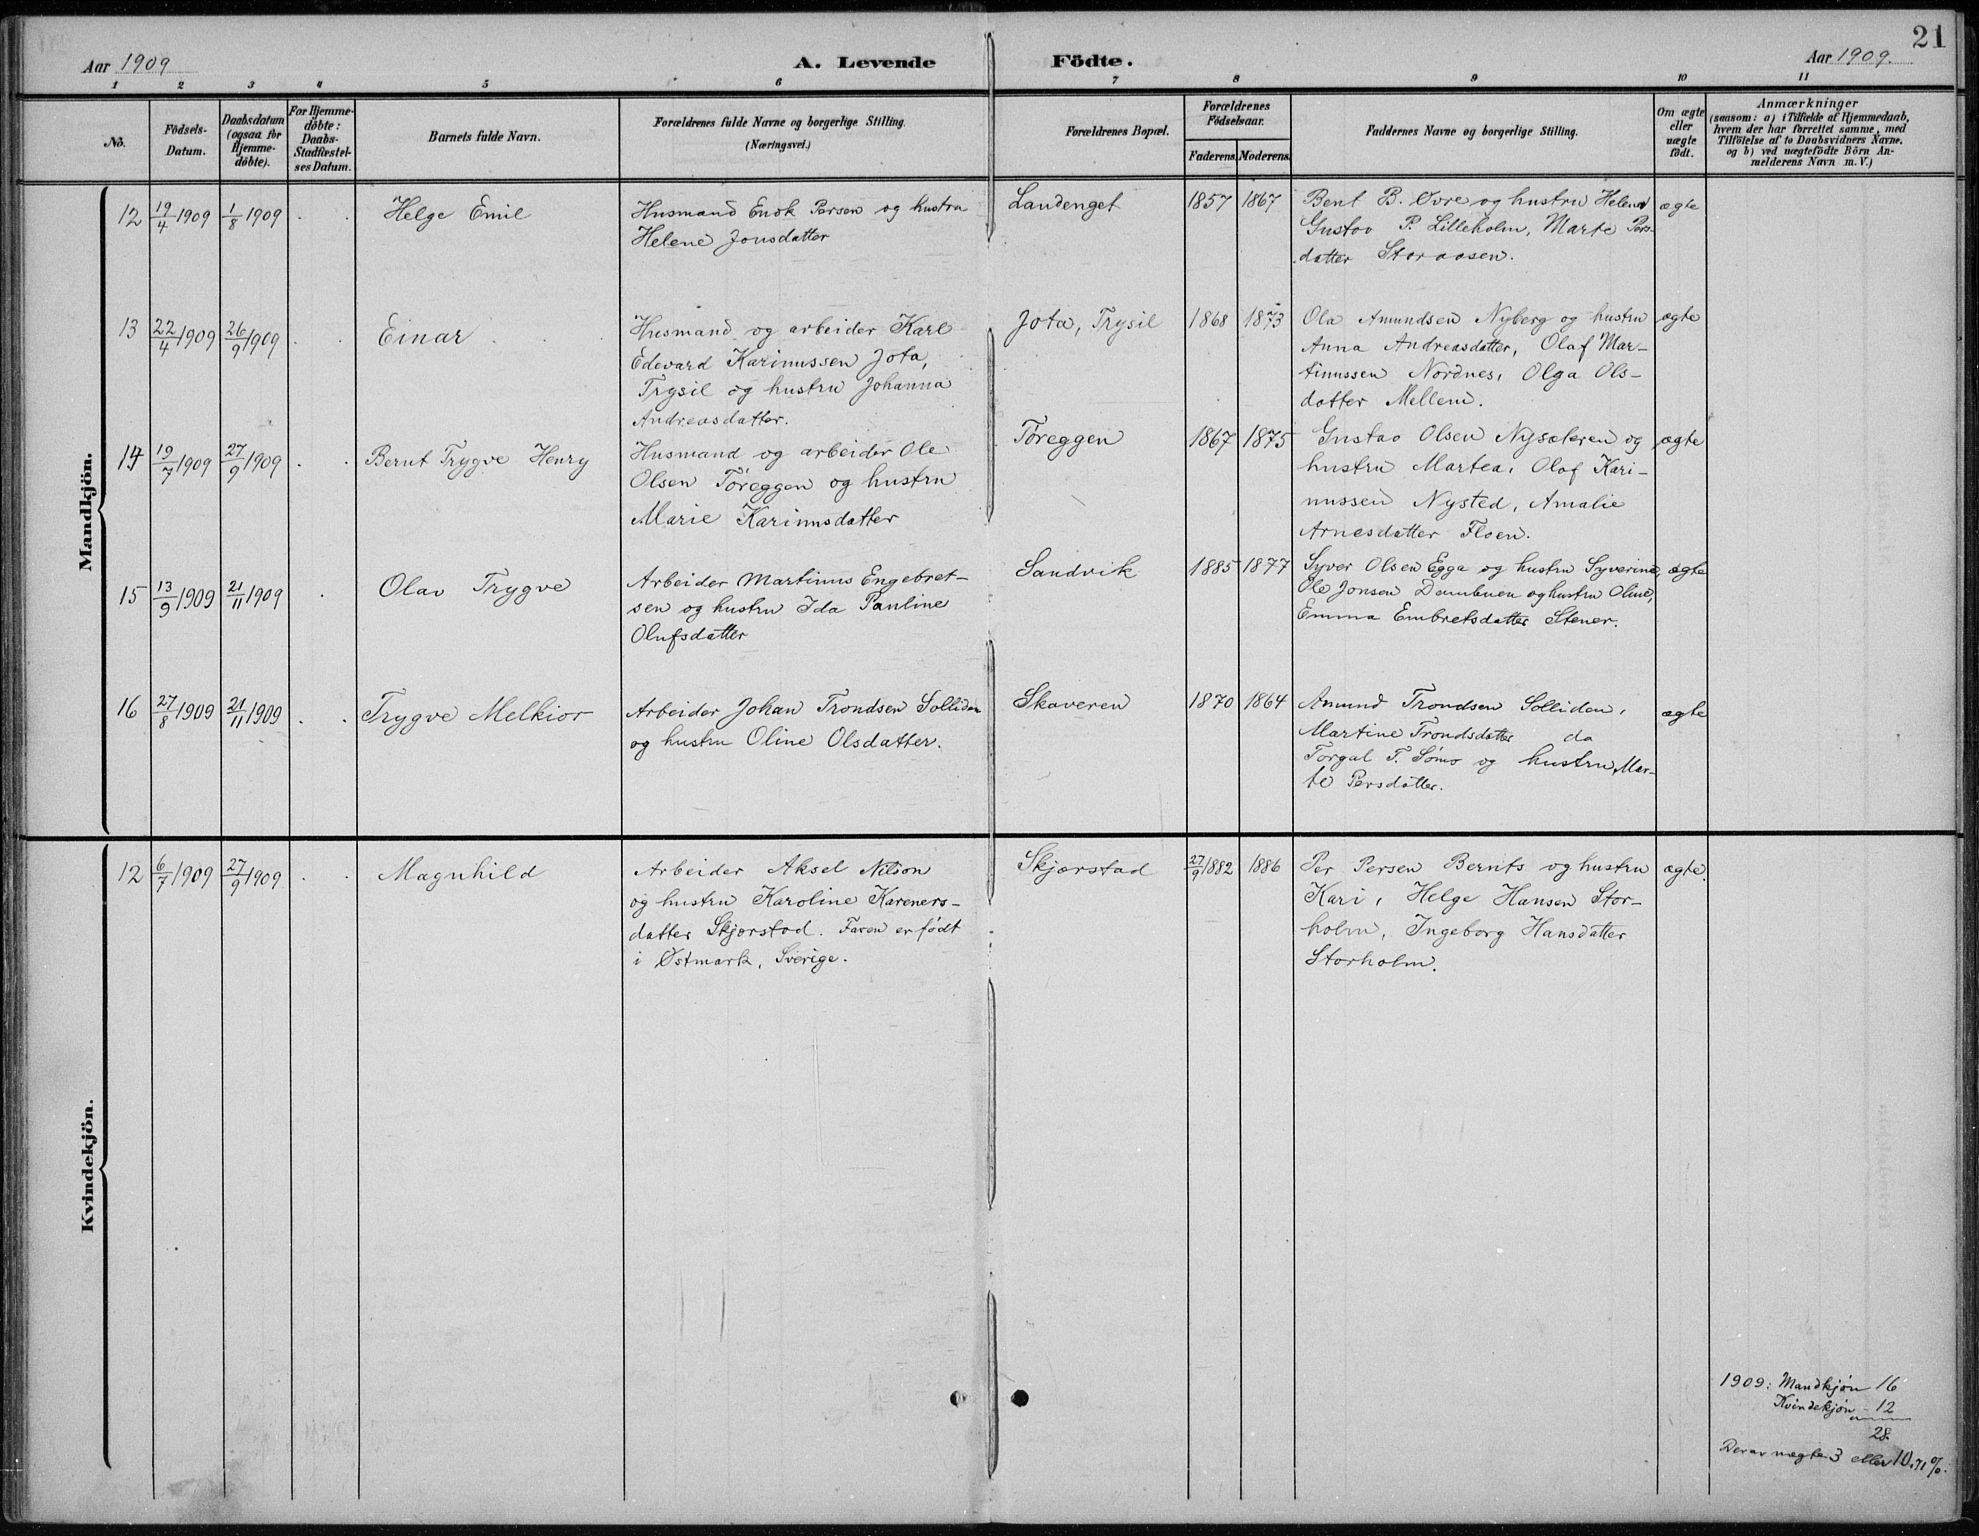 21
Aar 1909
A. Levende Födte.
Aar 1909.
1 2 3 4 5 6 7 8 9 10 11
No.
Födsels-
Datum.
Daabsdatum
(ogsaa for
Hjemme-
döbte).
For Hjemme-
döbte:
Daabs-
Stadfæstel-
ses Datum.
Barnets fulde Navn.
Forældrenes fulde Navne og borgerlige Stilling.
(Næringsvei.)
Forældrenes Bopæl.
Forældrenes
Födselsaar.
Faderens. Moderens.
Faddernes Navne og borgerlige Stilling.
Om ægte
eller
uægte
födt.
Anmærkninger
(saasom: a) i Tilfælde af Hjemmedaab,
hvem der har forrettet samme, med
Tilföielse af to Daabsvidners Navne,
og b) ved uægtefödte Börn An-
melderens Navn m. V.)
Mandkjön.
12 19/4 1909 1/8 1909
Helge Emil
Husmand Enok Persen og hustru
Helene Jonsdatter
Landenget
1857 1867
Bent B. Øvre og hustru Helene
Gustav P. Lilleholm, Marte Pers-
datter Storaasen.
ægte
13 22/4 1909 26/9 1909
Einar
Husmand og arbeider Karl
Edevard Karinussen Jota,
Trysil og hustru Johanna
Andreasdatter.
Jota, Trysil
1868 1873
Ola Amundsen Nyberg og hustru
Anna Andreasdatter, Olaf Mar-
tinussen Nordnes, Olga Ols-
datter Mellem.
ægte
14 19/7 1909 27/9 1909
Bernt Trygve Henry
Husmand og arbeider Ole
Olsen Tøreggen og hustru
Marie Karinusdatter
Tøreggen
1867 1875
Gustav Olsen Nysæteren og
hustru Martea, Olaf Kari-
nussen Nysted, Amalie
Arnesdatter Floen.
ægte
15 13/9 1909 21/11 1909
Olav Trygve
Arbeider Martinus Engebret-
sen og hustru Ida Pauline
Olufsdatter
Sandvik
1885 1877
Syver Olsen Egga og hustru Syverine,
Ole Jonsen Dambuen og hustru Oline,
Emma Embretsdatter Stener.
ægte
16 27/8 1909 21/11 1909
Trygve Melkior
Arbeider Johan Trondsen Solliden
og hustru Oline Olsdatter.
Skaveren
1870 1864
Amund Trondsen Solliden,
Martine Trondsdatter do
Torgal T. Sømo og hustru Mar-
te Persdatter.
ægte
Kvindekjön.
12 6/7 1909 27/9 1909
Magnhild
Arbeider Aksel Nilson
og hustru Karoline Kareners-
datter Skjærstad. Faren er født
i Østmark, Sverige.
Skjærstad
27/9 1882 1886
Per Persen Bernts og hustru
Kari, Helge Hansen Stor-
holm, Ingeborg Hansdatter
Storholm.
ægte.
1909: Mandkjøn 16
Kvindekjøn - 12
28.
Derav uægte 3 eller 10.71%.